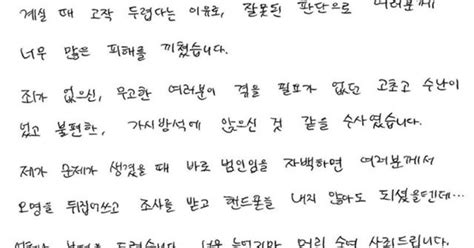 계실 때 고작 두렵다는 이유로, 잘못된 판단으로 여러분께
너무 많은 피해를 끼쳤습니다.
죄가 없으신, 무고한 여러분이 겪을 필요가 없던 고초고 수난이
었고 불편한, 가시방석에 앉으신 것 같을 수사였습니다.
제가 문제가 생겼을 때 바로 범인임을 자백하면 여러분께서
오명을 뒤집어쓰고 조사를 받고 핸드폰을 내지 않아도 되셨을텐데…
머리 숙여 사죄드립니다.